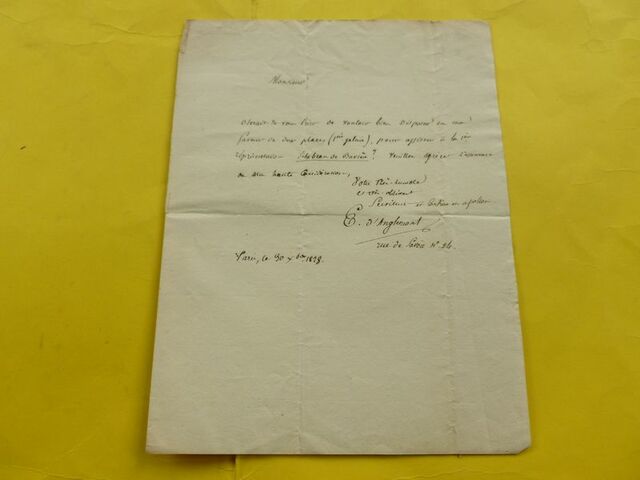 Monsieur,
de vous de vouloir bien disposer en ma
faveur de deux places (1ère galerie), pour assister à la 1ère
représentation de Veuillez agréer l'assurance
de ma haute considération,
Votre très humble
et très obéissant
Serviteur et
E. d'Anglemont
rue de Savoie N° 24.
Paris, le 30 Xbre 1828.